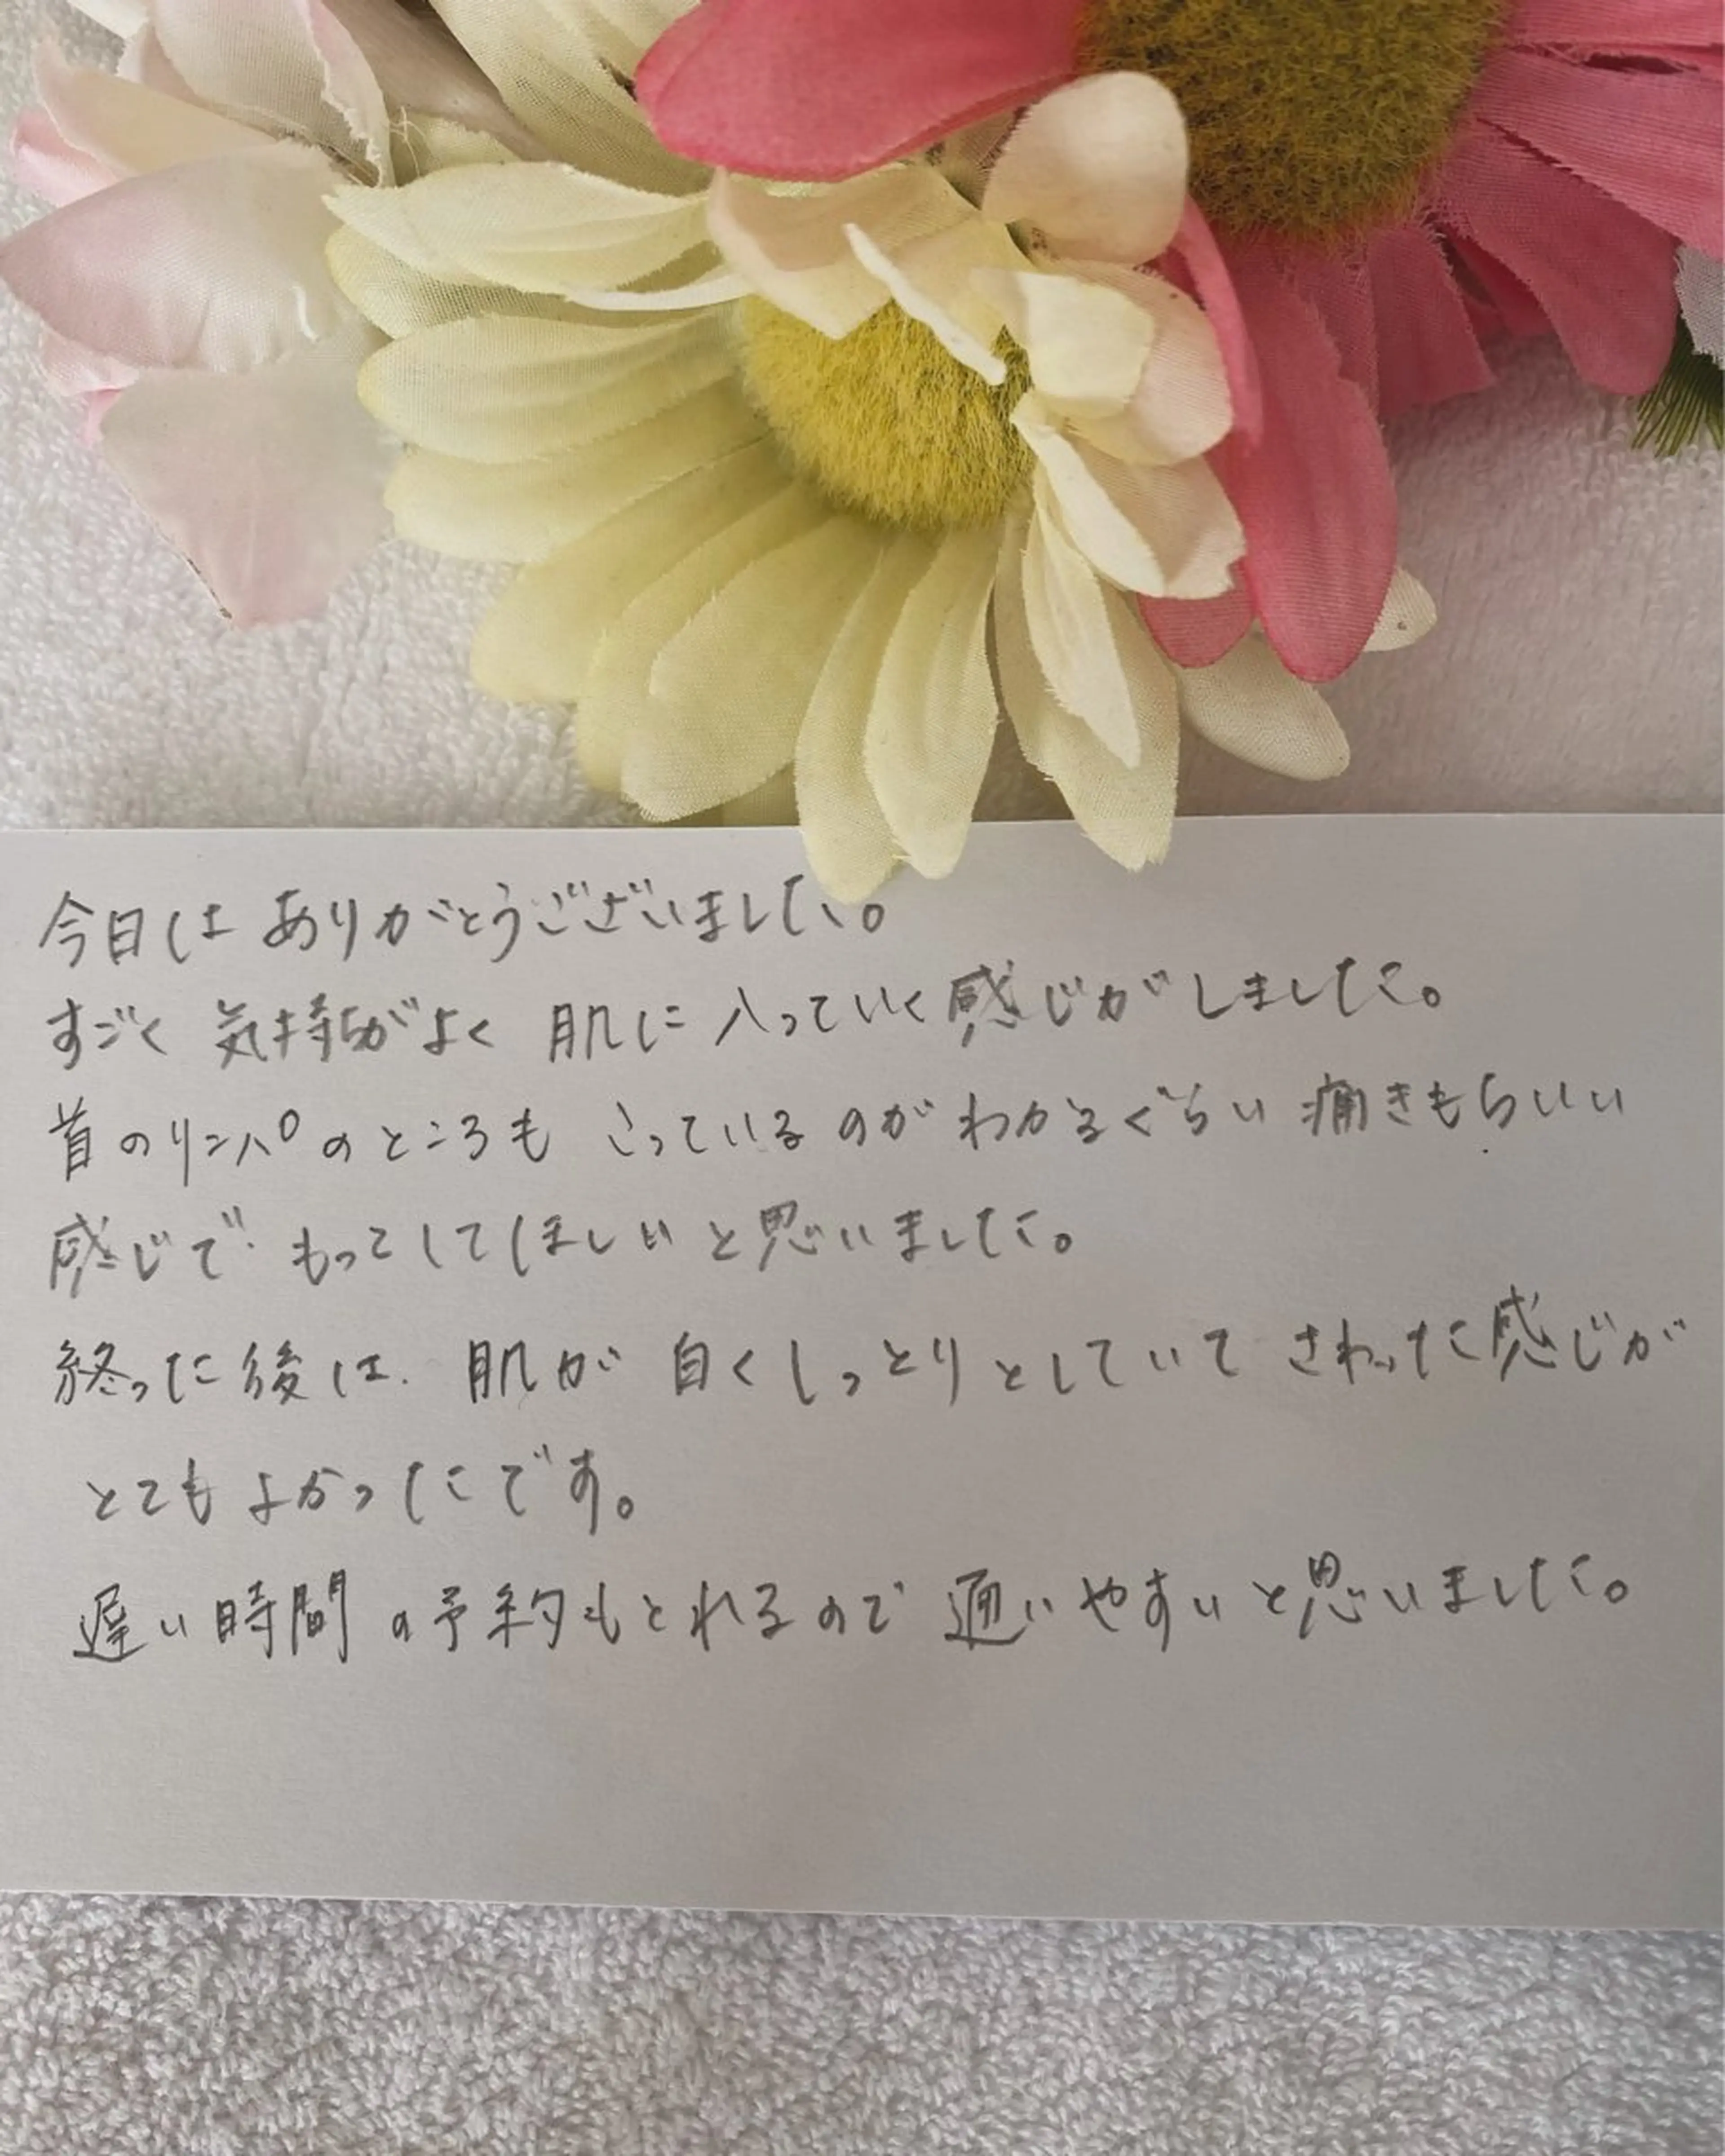 今日は ありがとうございました。
すごく 気持ちがよく 肌に 入っていく感じがしました。
首のリンパのところも こっているのが わかるぐらい 痛きもちいい
感じで もっとしてほしいと思いました。
終った後は、肌が 白くしっとりとしていて さわった感じが
とても よかったです。
遅い時間の予約もとれるので 通いやすいと思いました。